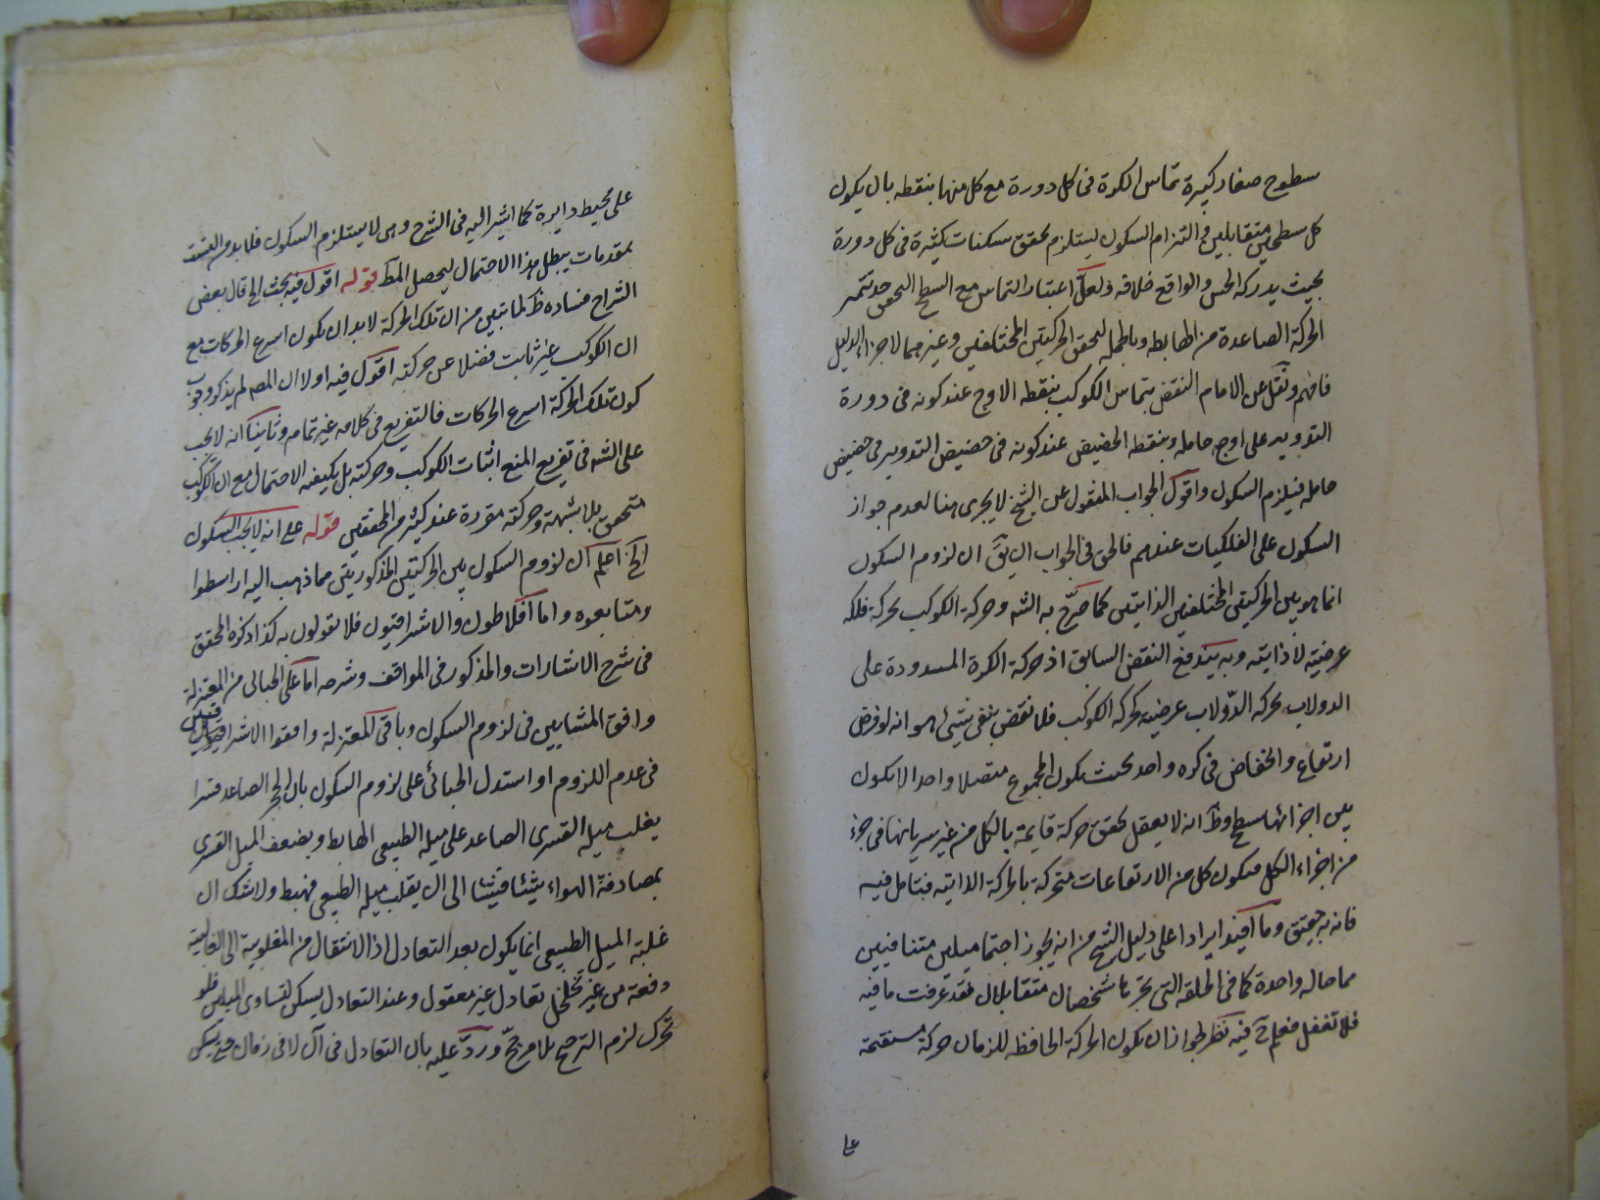 سطوح صغار كثيرة تماس الكرة فى كل دورة مع كل منها بنقطه بان يكون
كل سطحين متقابلين فى التزام السكون ليستلزم تحقق سكنات كثيرة فى كل دورة
بحيث يدركه الحس والواقع خلافه ولعل اعتبار التماس مع السطح
الحركة الصاعدة من الهابطه وبالجمله لتحقق الحركتين المختلفتين وغيرهما لاجزاء الدليل
فافهم ونقل عن الامام النقض بتماس الكوكب بنقطه الاوج عند كونه فى دورة
التدوير على اوج حامله وبنقطه الحضيض عند كونه فى حضيض التدوير فى حضيض
حامله فيلزم السكون واقول الجواب المنقول عن الشيخ لا يجرى هنا لعدم جواز
السكون على الفلكيات عندهم فالحق فى الجواب ان يق ان لزوم السكون
انما هو بين الحركتين المختلفتين الذاتيتين كما صرّح به الشه وحركة الكوكب بحركة فلكه
عرضيته لا ذايته وبه يندفع النقض السابق اذ حركة الكرة المسدودة على
الدولاب بحركه الدّولاب عرضية كحركه الكوكب فلا نقض بقى شئ هو انه لو فرض
ارتفاع وانخفاض فى كره واحد بحيث يكون المجموع متصلا واحدا لا يكون
بين اجزائها سطح وظ انه لا يعقل تحقق حركة قايمة بالكل من غير سريانها فى جزء
من اجزاء الكل فيكون كل من الارتفاعات متحركة بالحركة الذاتيه فتامل فيه
فانه به حقيق وما قيل ايرادا على دليل الشيخ من انه يجوز اجتماع ميلين متنافيين
مما حاله واحدة كما فى الحلقه التى بجرّها شخصان متقابلان فقد عرفت ما فيه
فلا تغفل فعلم ح فيه نظر لجواز ان يكون الحركة الحافظه للزمان حركة مستقيمة
على
على محيط دايرة كما اشير اليه فى الشرح وهى لا يستلزم السكون فلا بد من
بمقدمات يبطل هذا الاحتمال ليحصل المط قوله اقول فيه بحث الخ قال بعض
الشراح فساده ظ لما تبين من ان تلك الحركة لا بد ان يكون اسرع الحركات مع
ان الكوكب غير ثابت فضلا عن حركته اقول فيه اولا ان المصم لم يذكر وجوب
كون تلك الحركة اسرع الحركات فالتفريع فى كلامه غير تمام وثانيا انه لا يجب
على الشه فى تفريع المنع اثبات الكوكب وحركته بل يكفيه الاحتمال مع ان الكوكب
متحقق بلا شبهة وحركته مقررة عند كثير من المحققين قوله على انه لا يجب السكون
الخ اعلم ان لزوم السكون بين الحركتين المذكورتين مما ذهب اليه ارسطو
ومتابعوه واما افلاطون والاشراقيون فلا يقولون به كذا ذكره المحقق
فى شرح الاشارات والمذكور فى المواقف وشرحه ان الجبائى من المعتزلة
وافق المشايين فى لزوم السكون وباقى المعتزلة وافقوا الاشراقيين
فى عدم اللزوم او استدل الجبائى على لزوم السكون بان الحجر الصاعد قسرا
يغلب ميله القسرى الصاعد على ميله الطبيعى الهابط ويضعف الميل القسرى
بمصادفة الهواء شيئا فشيئا الى ان يغلب ميله الطبيعى فهبط ولا شك ان
غلبة الميل الطبيعى انما يكون بعد التعادل اذ الانتقال من المغلوبية الى الغالبية
دفعة من غير تخلل تعادل غير معقول وعند التعادل يسكن لتساوى الميلين فلو
تحرك لزم الترجيح بلا مرجّح وردّ عليه بان التعادل فى آن لا فى زمان حتى يسكن